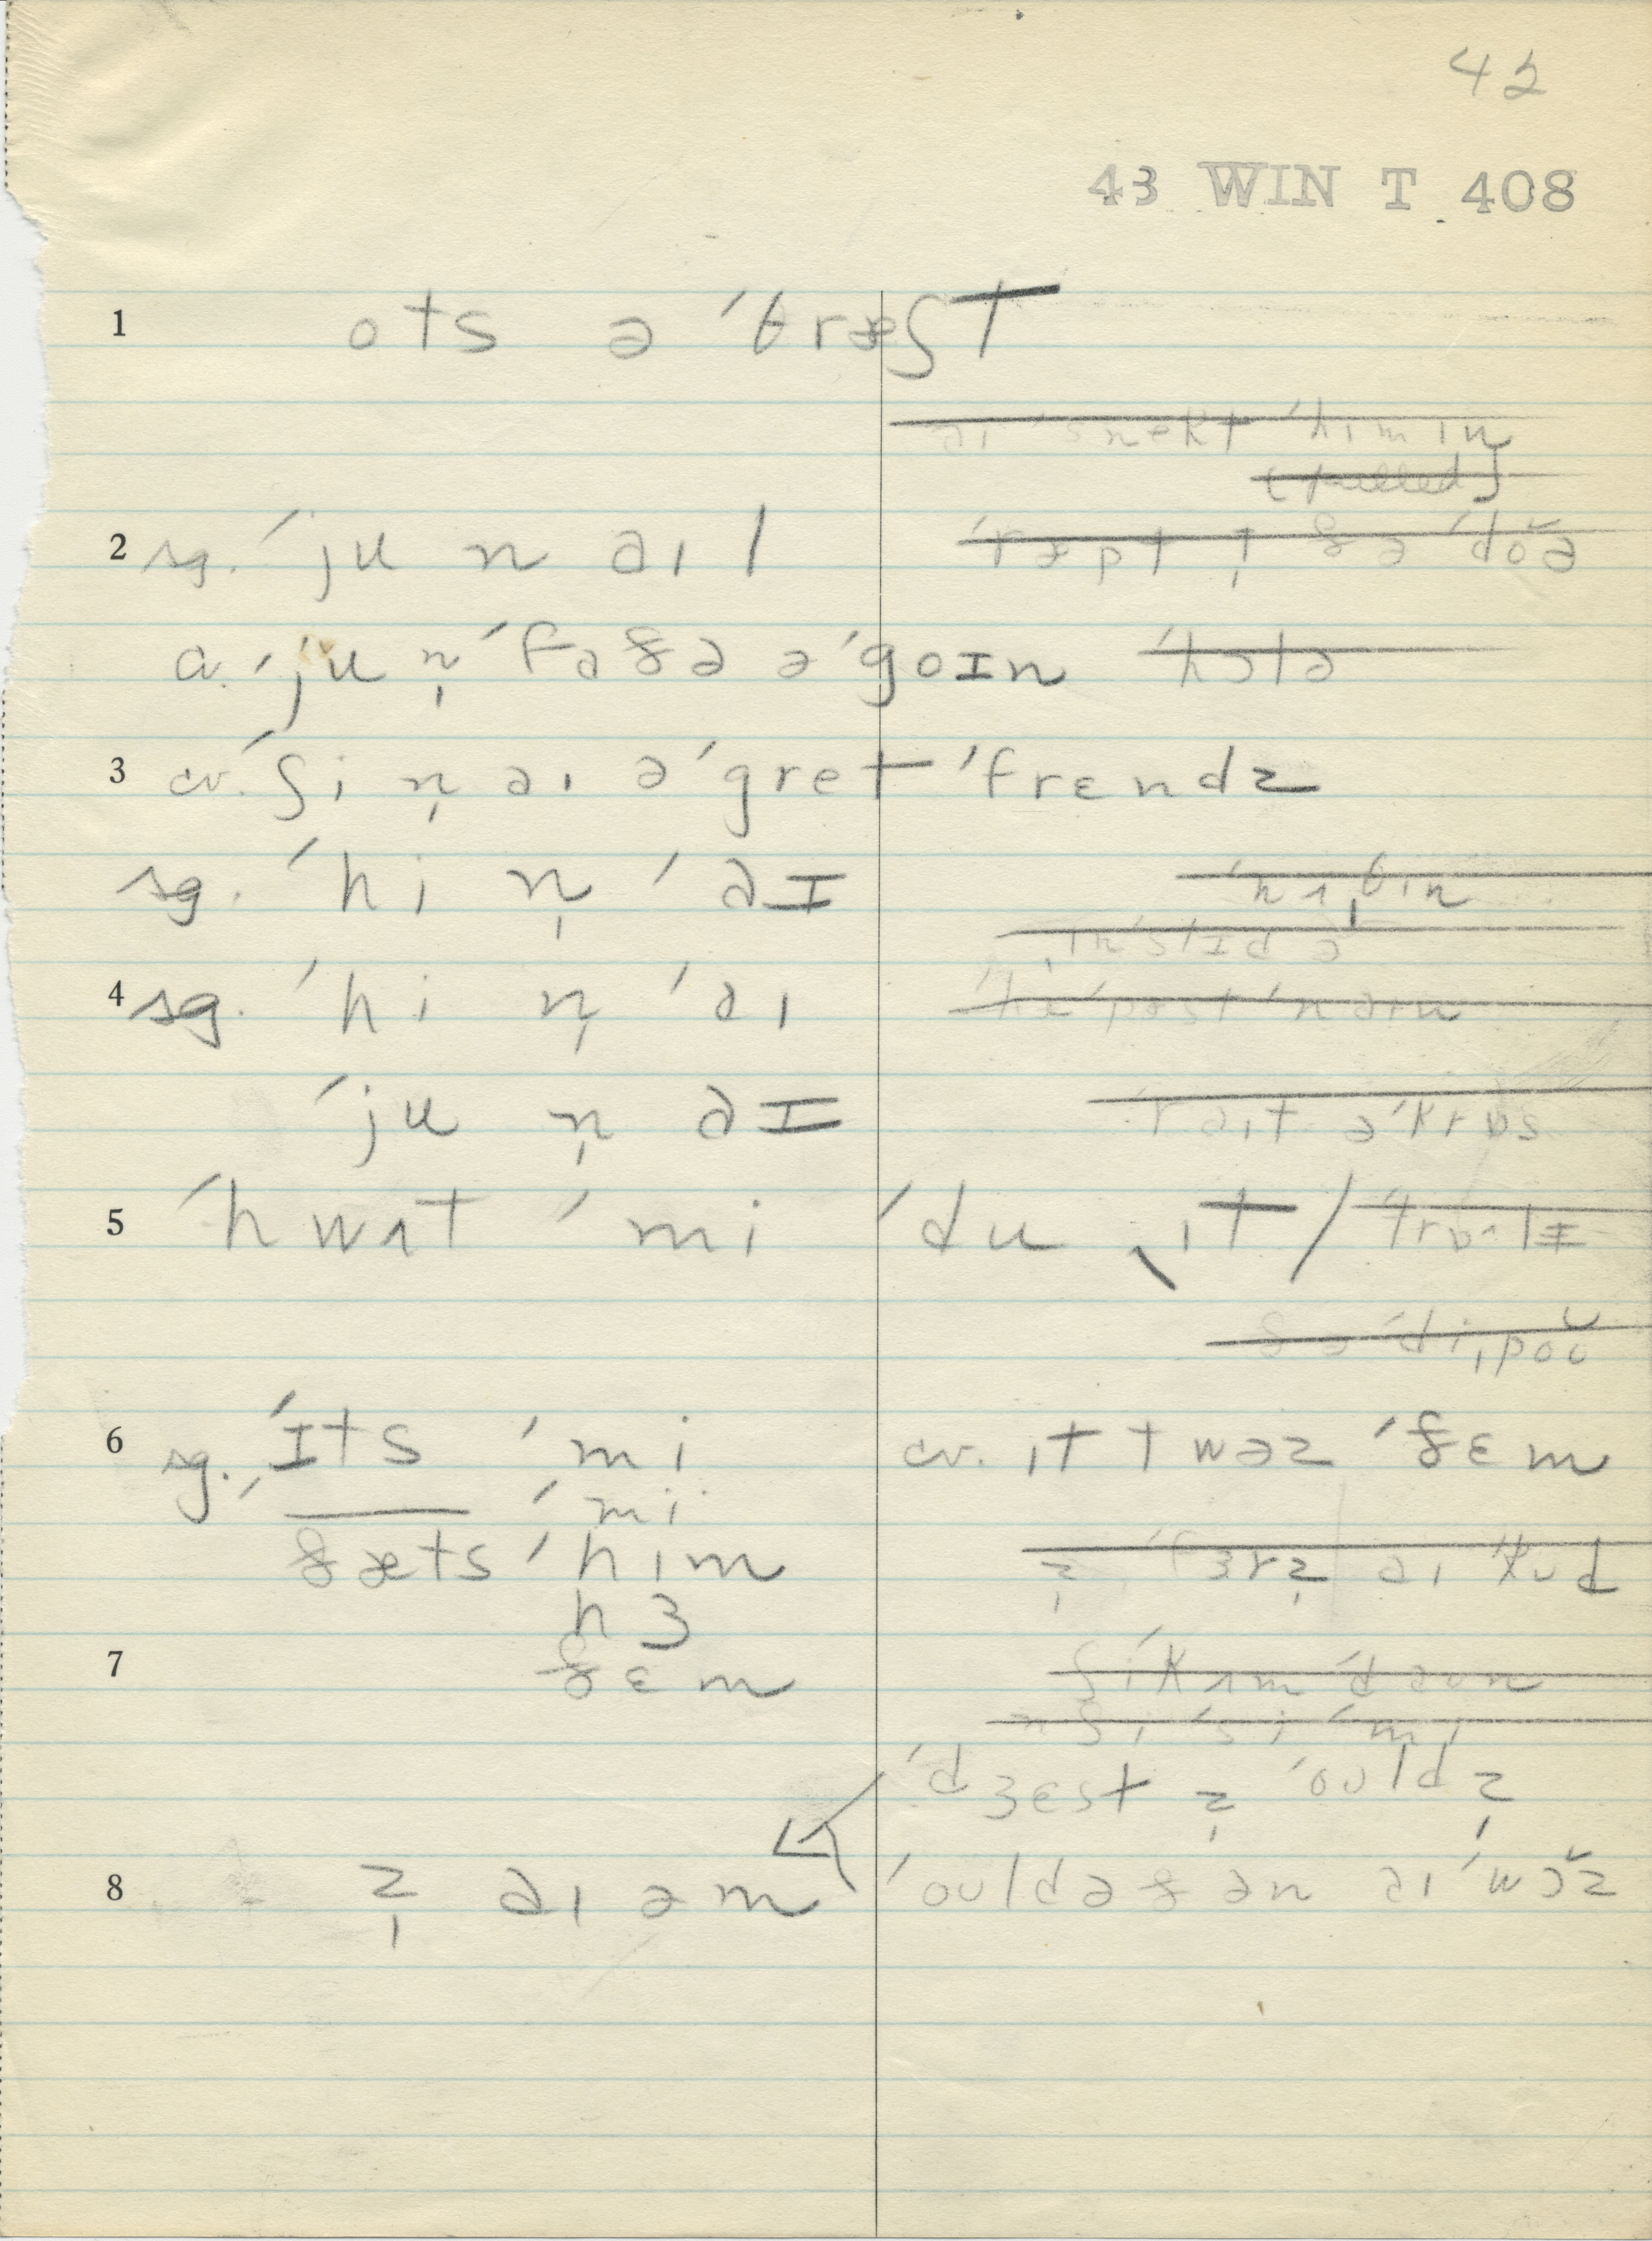 42
43 WIN T 408
1 ots ə ˈθræʃt
ˈhɪm ɪn
[pulled]
2 sg. ˈju n aɪ l ˈræpt ı̩ ðə ˈdoə̆
cv. ˈju n̩ ˈfaðə ə ˈgoɪn ˈhɔlə
3 cv. ˈʃi n̩ aɪ ə ˈgret ˈfrɛndz
sg. ˈhi n̩ ˈaɪ ˈnʌθin
ɪnˈstɪd ə
4 sg. ˈhi n̩ ˈaɪ ˈpast ˈnaɪn
ˈju n̩ aɪ ˈraɪt əˈkrɒs
5 ˈhwʌt ˈmi ˈdu ˌɪt /
ðə ˈdiˌpoŭ
6 sg. ˈɪts ˈmi cv. ɪt t wəz ˈðɛm
ˈ___ ˈmi
ðæts ˈhɪm z̩ ˈfɜrz̩ aɪ kʊd
hɜ
7 ðɛm ʃi ˈkʌm ˈdaʊn
n ʃi ˈsi ˈmi
ˈdʒɛst z̩ ˈoʊld z̩
8 z̩ aɪ əm ˈoʊldə ðən aɪ ˈwɔ̆z